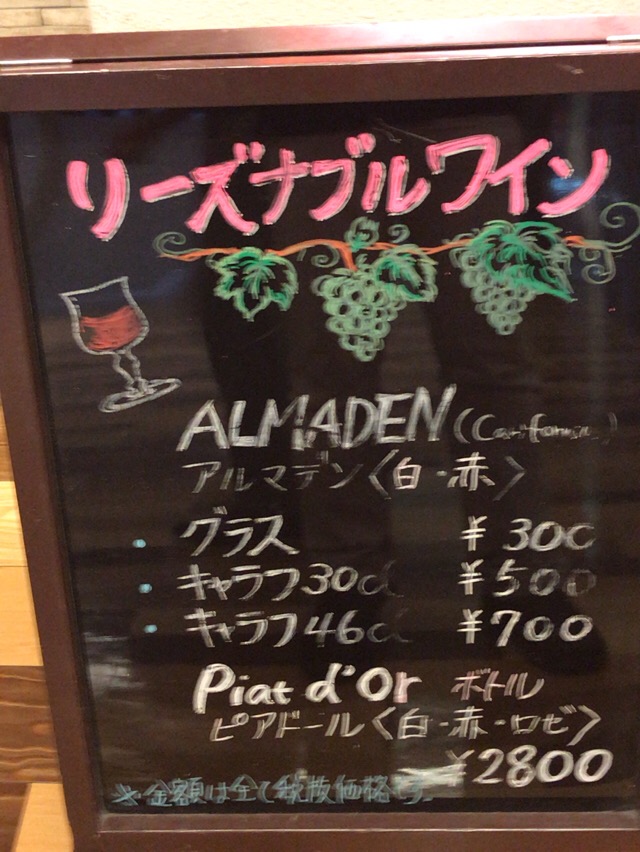 リーズナブルワイン
ALMADEN (California)
アルマデン〈白・赤〉
・グラス ¥300
・キャラフ30cl ¥500
・キャラフ46cl ¥700
Piat d'Or ボトル
ピアドール〈白・赤・ロゼ〉
¥2800
※金額は全て税抜価格です。